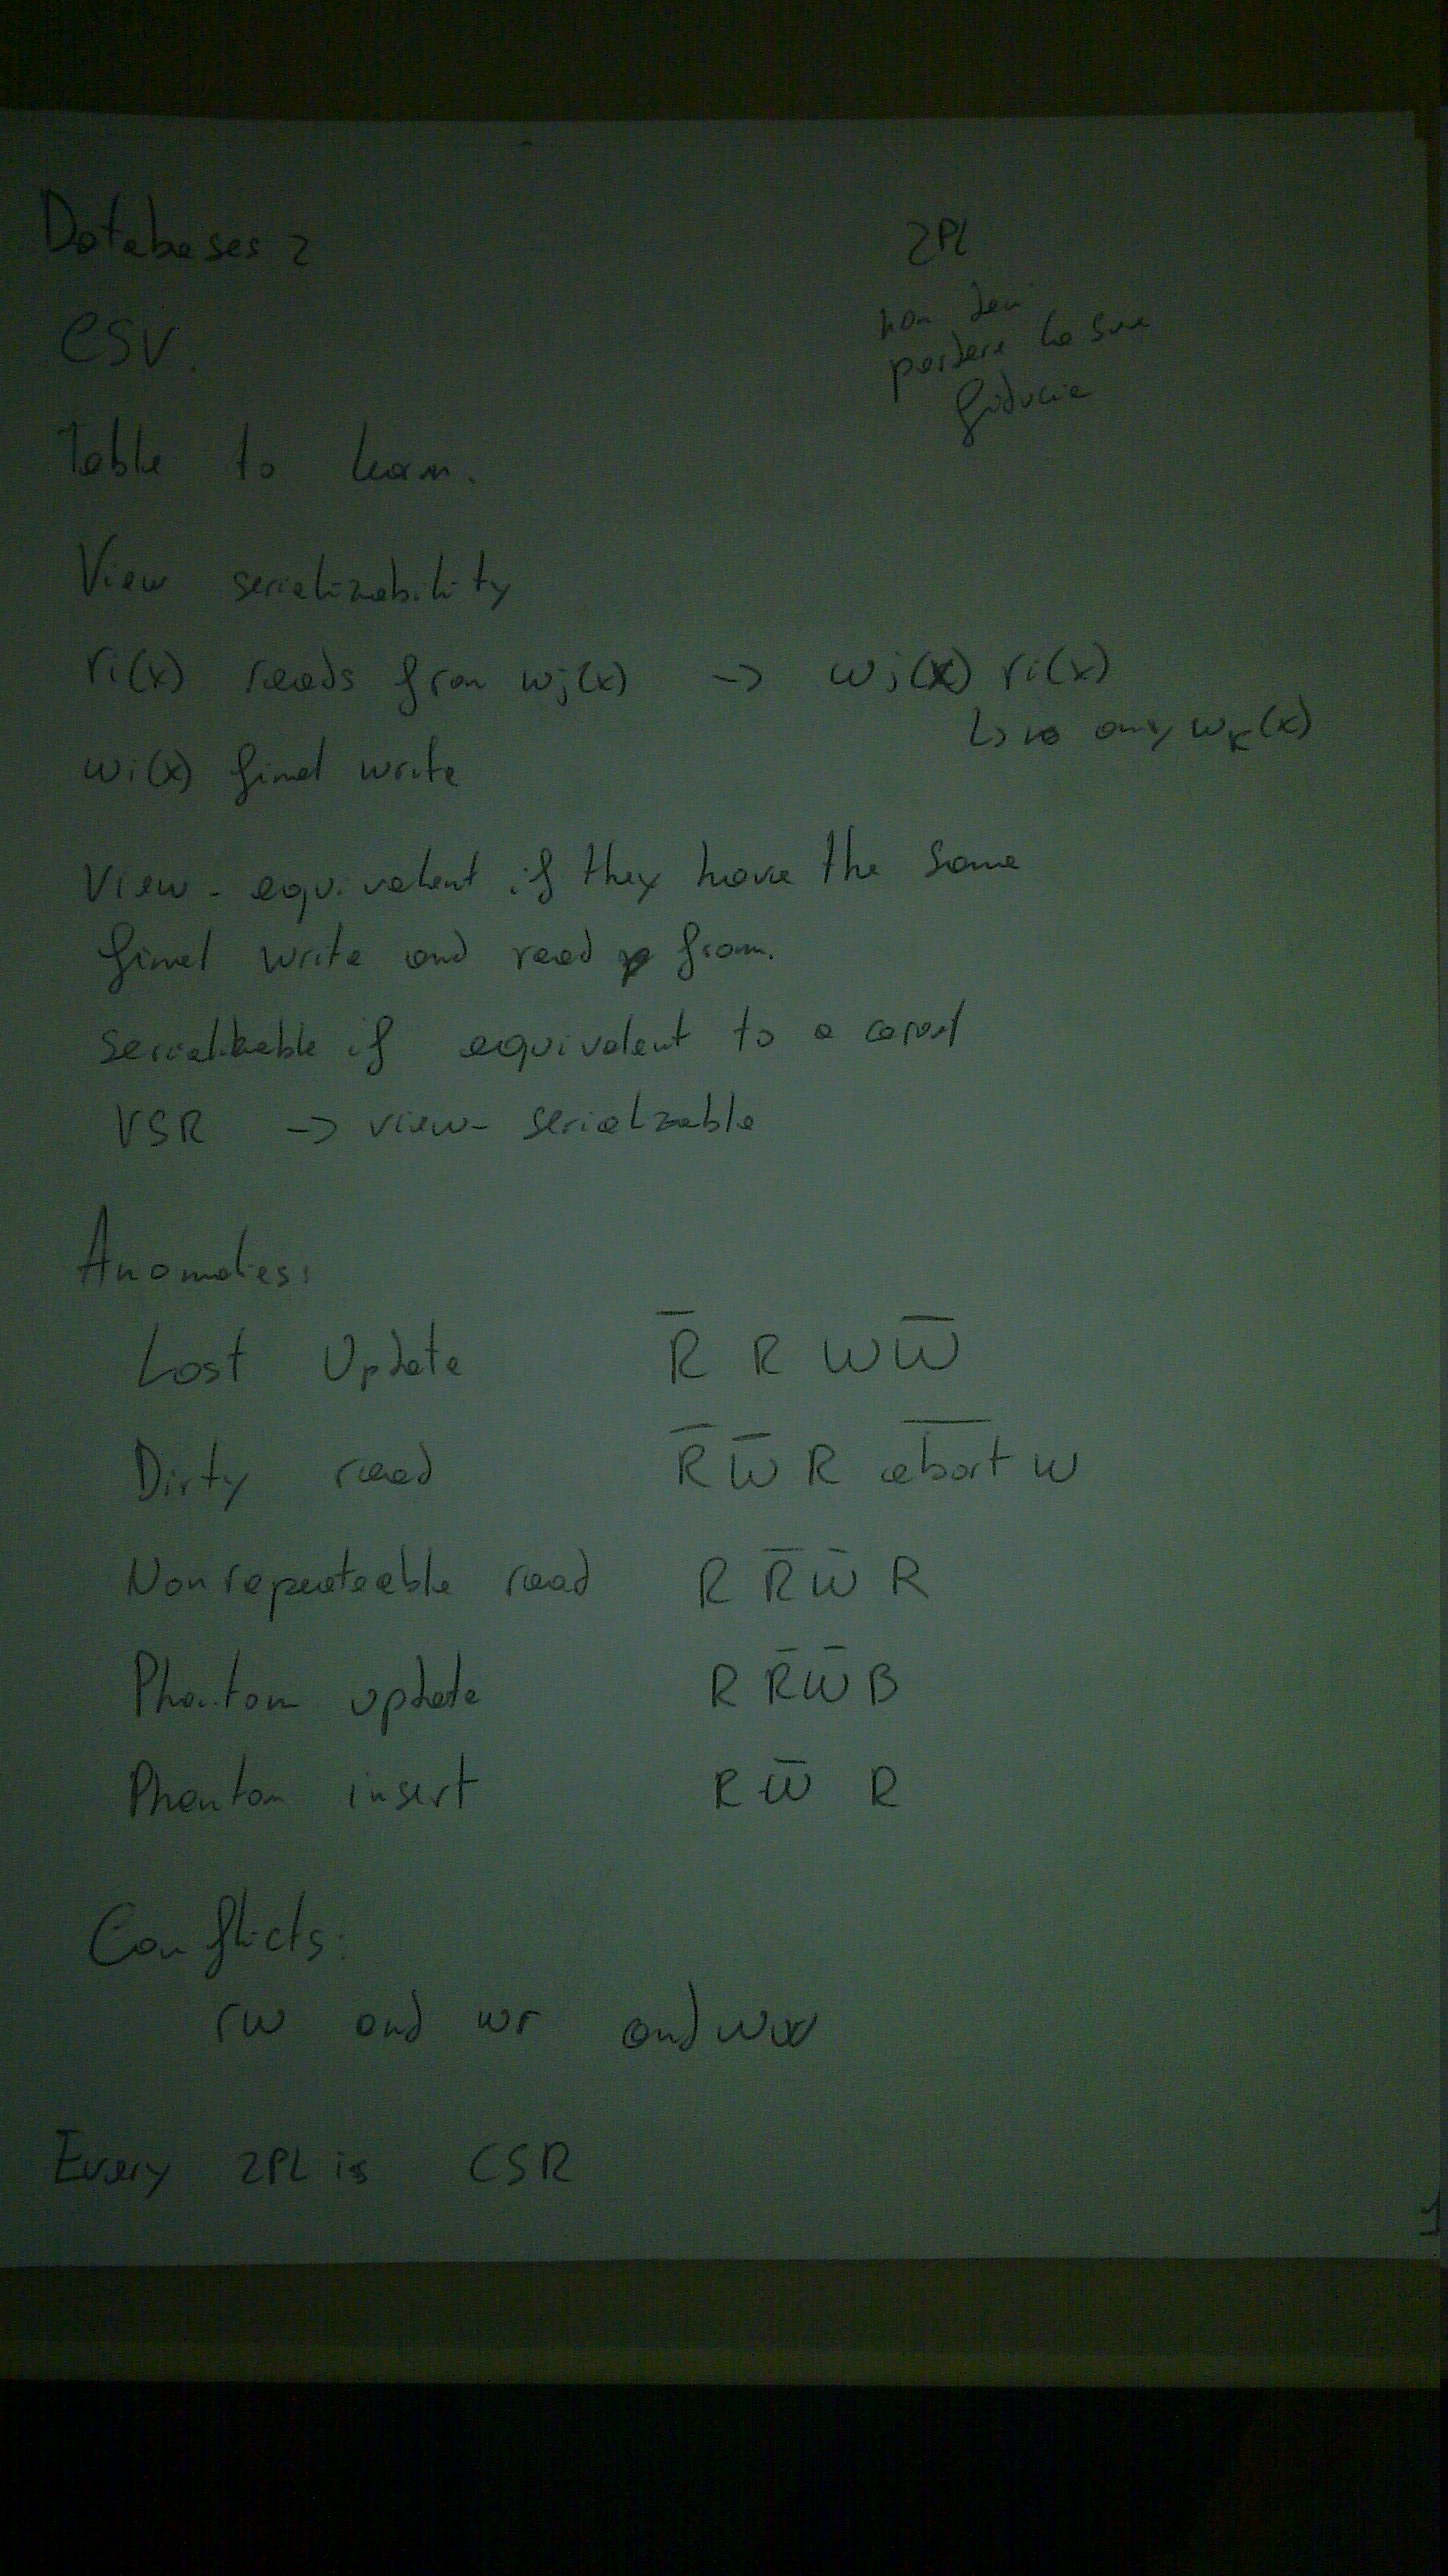 Databases 2
2PL
CSV.
non devi
perdere la sua
fiducia
Table to learn.
View serializability
ri(x) reads from wj(x) -> wj(x) ri(x)
↳ no any wk(x)
wi(x) final write
View-equivalent if they have the same
final write and read from.
serializable if equivalent to a
VSR -> view-serializable
Anomalies:
Lost Update R̅ R W W̅
Dirty read R̅ W̅ R abort W
Nonrepeateable read R R̅ W̅ R
Phantom update R R̅ W̅ B
Phantom insert R W̅ R
Conflicts:
rw and wr and ww
Every 2PL is CSR
1